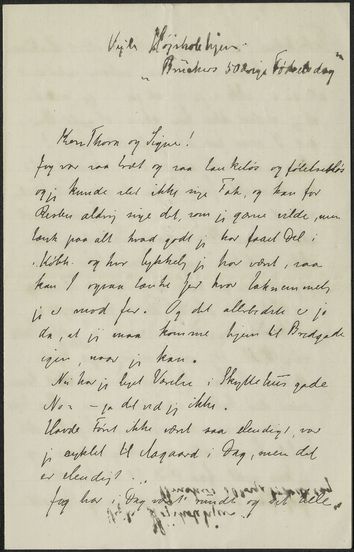 Vejle Højskolehjem
"Bruckers 50 aarige Fødselsdag"
Kære Thora og Signe!
Jeg var saa træt og saa tankeløs og følelsesløs
og jeg kunde slet ikke sige Tak, og kan for
Resten aldrig sige det, som jeg gerne vilde, men
tænk paa alt hvad godt jeg har faaet Del i
Købh. og hvor lykkelig jeg har været, saa
kan I ogsaa tænke Jer hvor taknemmelig
jeg er mod Jer. Og det allerbedste er jo
da, at jeg maa komme hjem til Bredgade
igen, naar jeg kan.
Nu har jeg lejet Værelse i Skyttehusgade
No - ja det ved jeg ikke.
Havde Føret ikke været saa elendigt, var
jeg cyklet til Aagaard i Dag, men det
er elendigt...
Jeg har i Dag været rundt og set alle